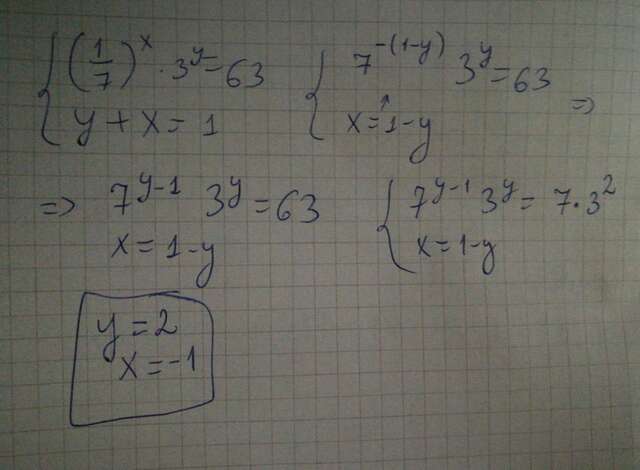 (1/7)^x · 3^y = 63
y + x = 1
7^-(1-y) 3^y = 63
x = 1 - y
=>
=> 7^y-1 3^y = 63
x = 1 - y
7^y-1 3^y = 7 · 3^2
x = 1 - y
y = 2
x = -1